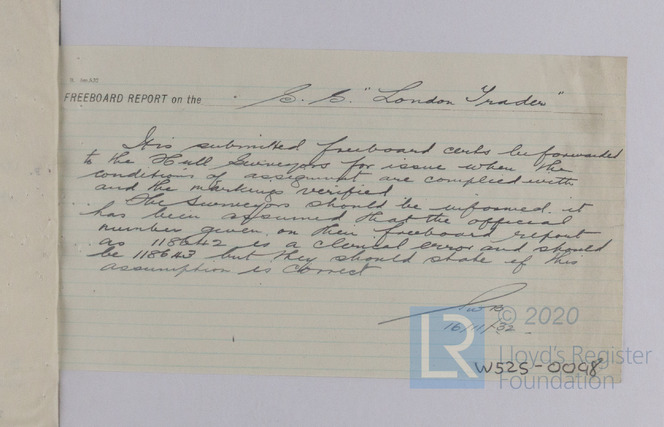 FREEBOARD REPORT on the S.S. "London Trader"
It is submitted freeboard certs be forwarded
to the Hull Surveyors for issue when the
conditions of assignment are complied with
and the markings verified.
The Surveyors should be informed it
has been assumed that the official
number given on their freeboard report
as 118642 is a clerical error and should
be 118643 but they should state if this
assumption is correct
16/11/32
LR © 2020
Lloyd's Register
Foundation
W525-0098